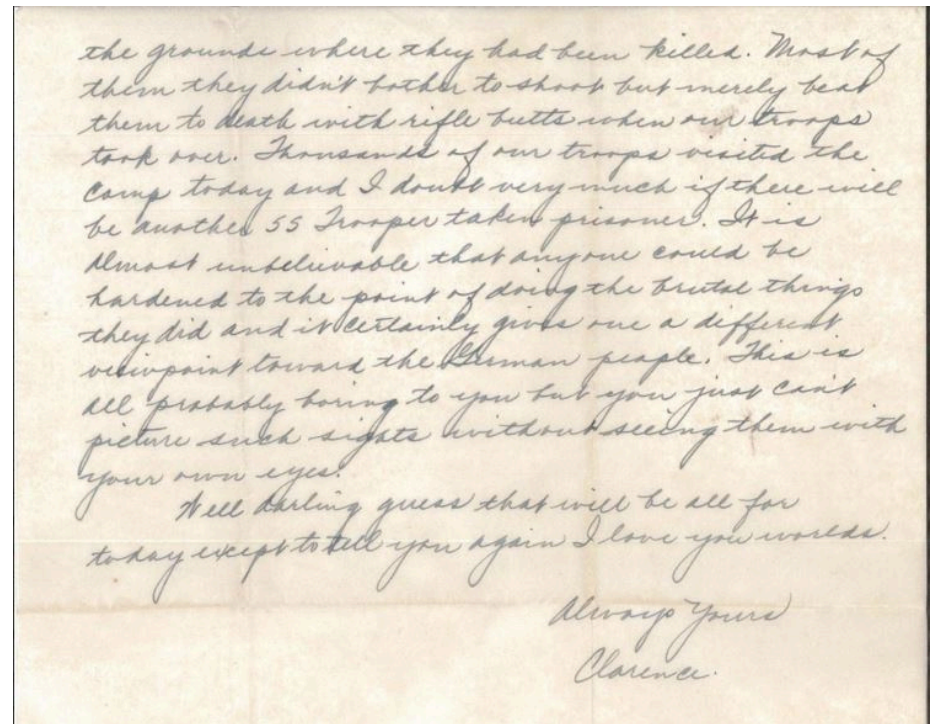 the grounds where they had been killed. Most of
them they didn't bother to shoot but merely beat
them to death with rifle butts when our troops
took over. Thousands of our troops visited the
camp today and I doubt very much if there will
be another SS Trooper taken prisoner. It is
almost unbelievable that anyone could be
hardened to the point of doing the brutal things
they did and it certainly gives one a different
viewpoint toward the German people. This is
all probably boring to you but you just can't
picture such sights without seeing them with
your own eyes.
Well darling guess that will be all for
today except to tell you again I love you worlds.
Always Yours
Clarence.